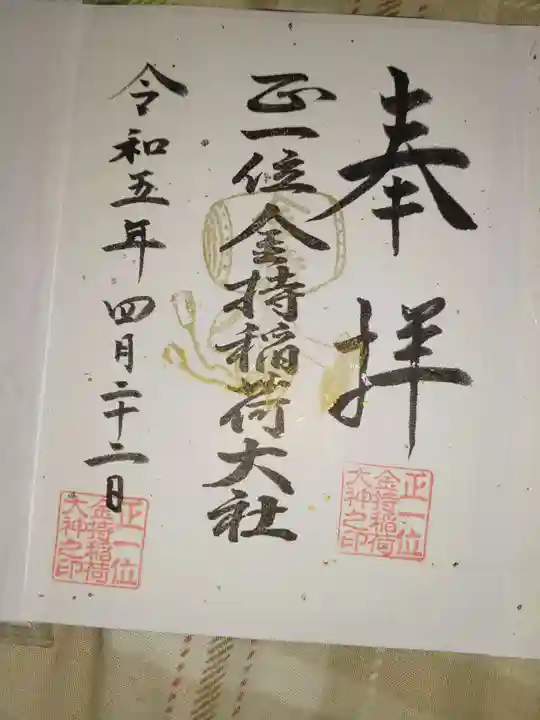 奉拝
正一位
金持稲荷
大神之印
正一位金持稲荷大社
令和五年四月二十二日
正一位
金持稲荷
大神之印